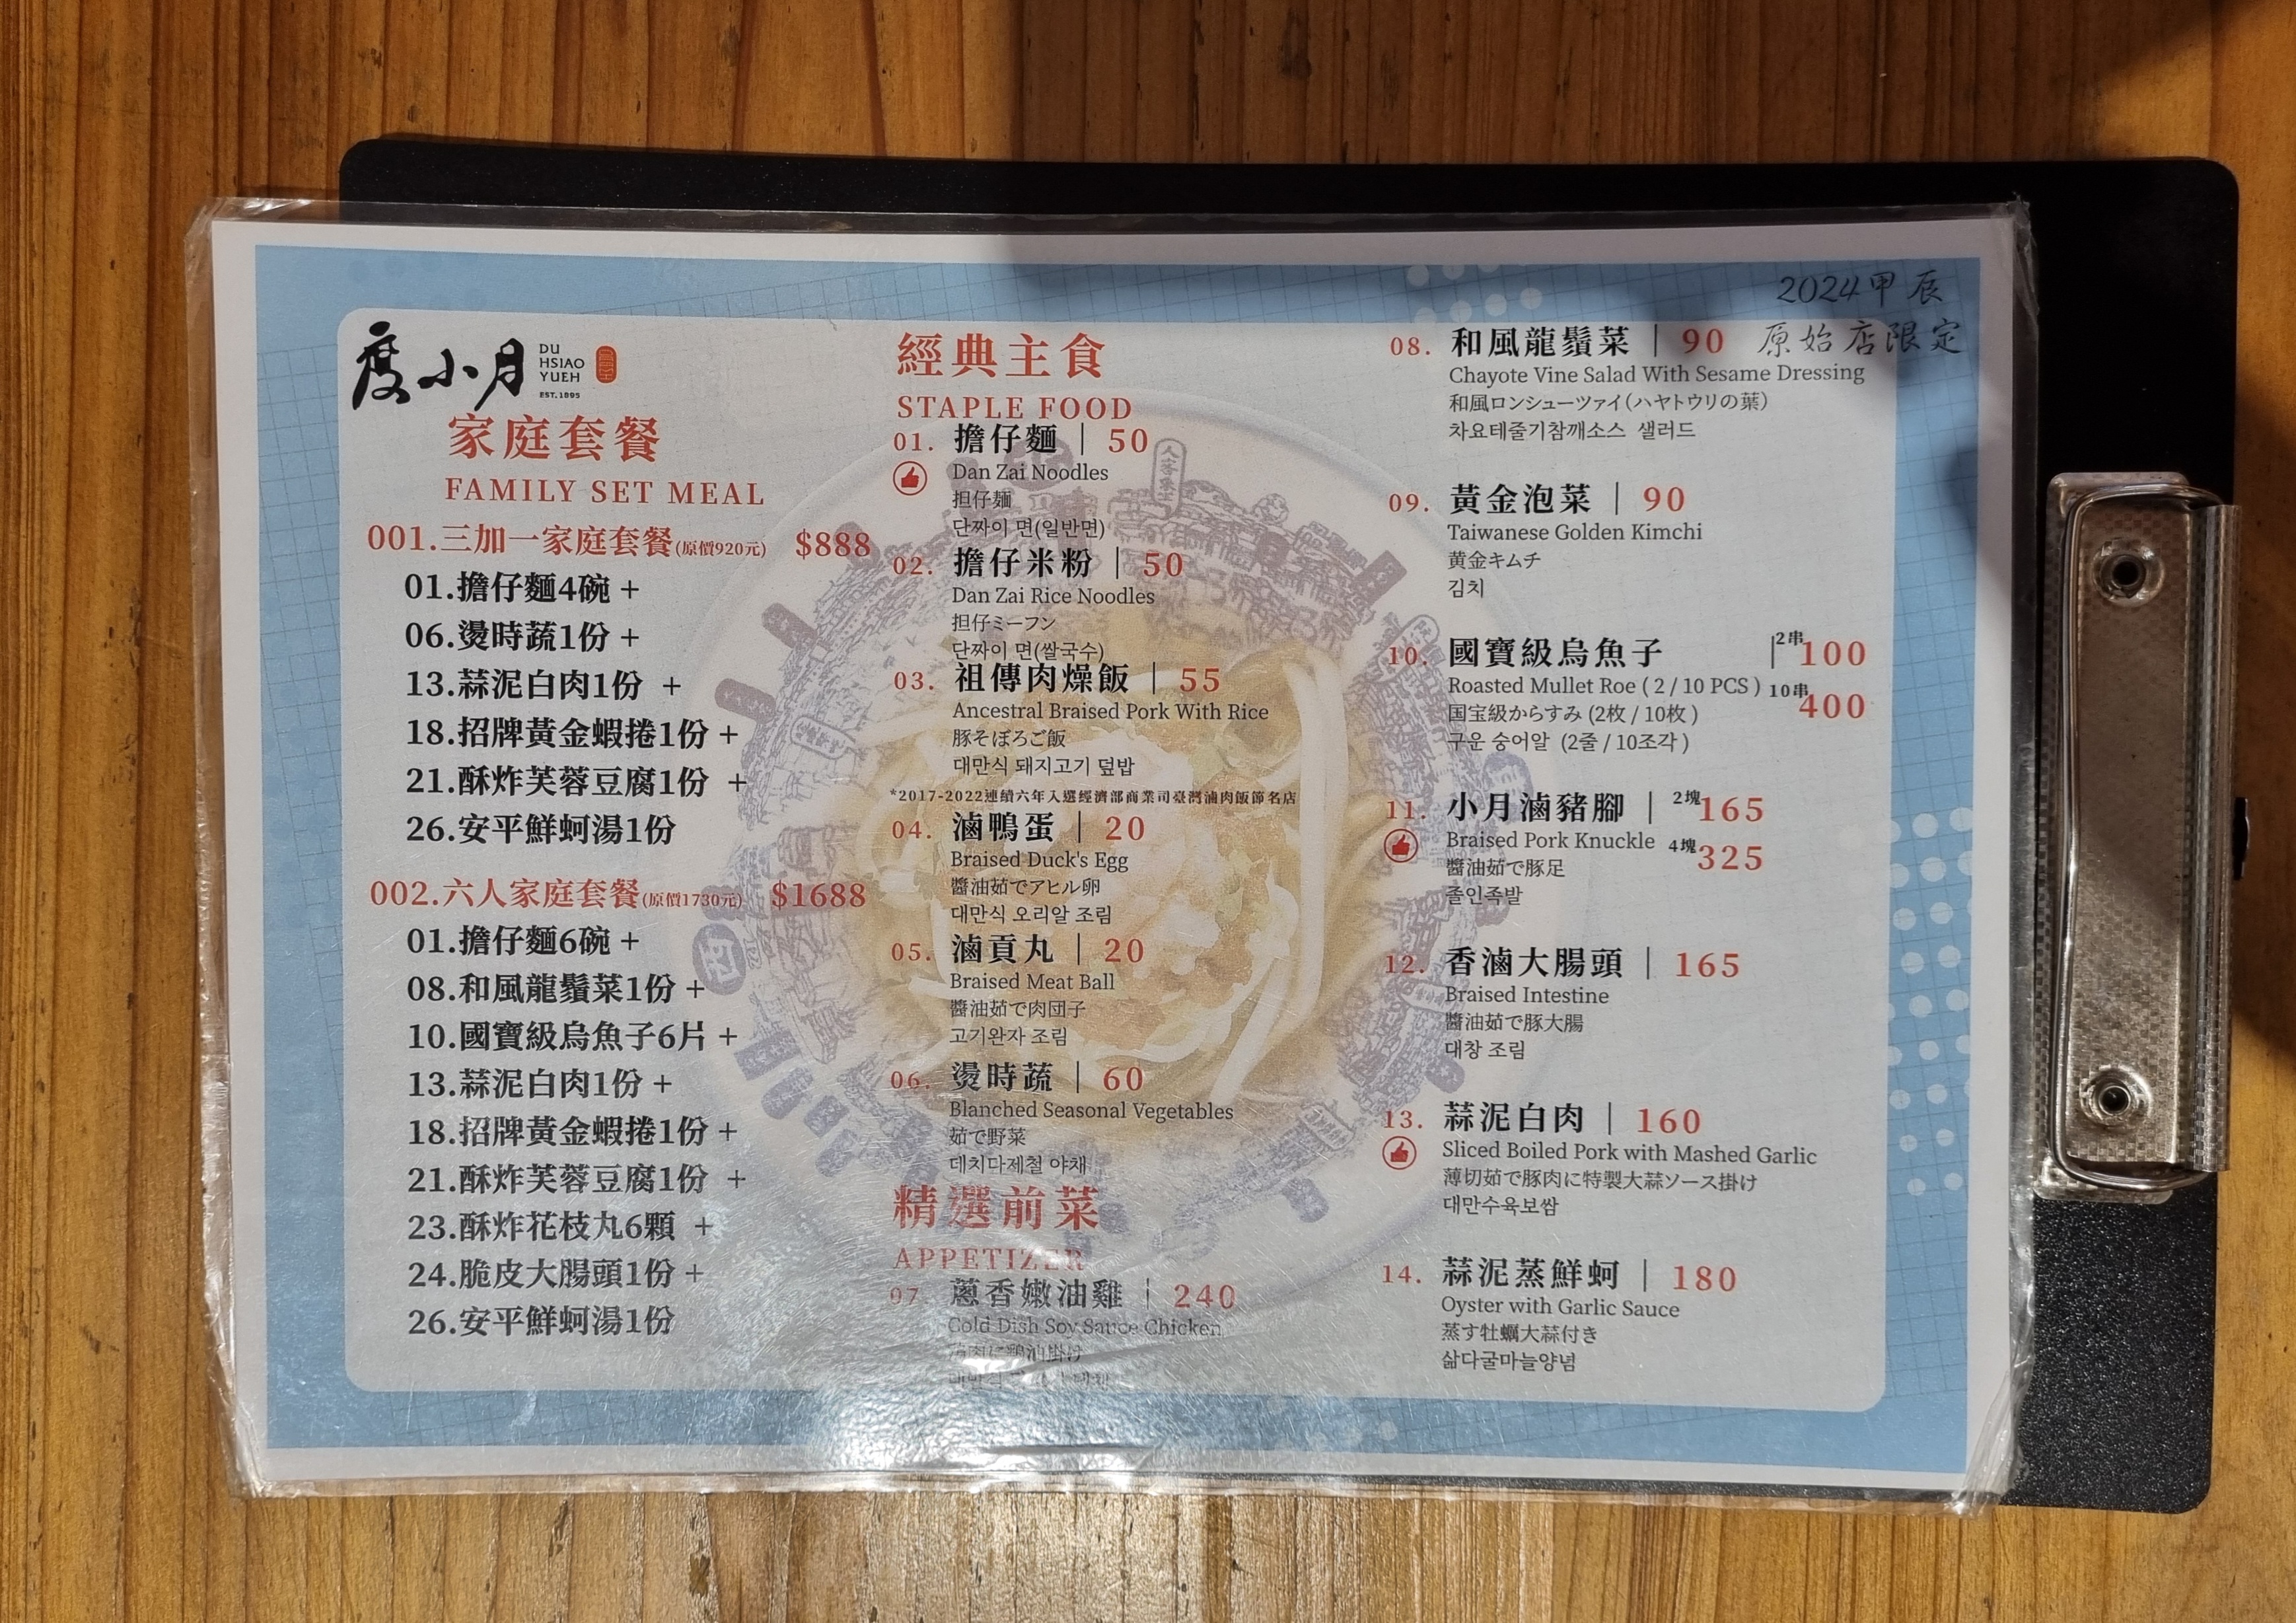 度小月
DU
HSIAO
YUEH
EST.1895
家庭套餐
FAMILY SET MEAL
001.三加一家庭套餐(原價920元) $888
01.擔仔麵4碗 +
06.燙時蔬1份 +
13.蒜泥白肉1份 +
18.招牌黃金蝦捲1份 +
21.酥炸芙蓉豆腐1份 +
26.安平鮮蚵湯1份
002.六人家庭套餐(原價1730元) $1688
01.擔仔麵6碗 +
08.和風龍鬚菜1份 +
10.國寶級烏魚子6片 +
13.蒜泥白肉1份 +
18.招牌黃金蝦捲1份 +
21.酥炸芙蓉豆腐1份 +
23.酥炸花枝丸6顆 +
24.脆皮大腸頭1份 +
26.安平鮮蚵湯1份
經典主食
STAPLE FOOD
01. 擔仔麵 | 50
Dan Zai Noodles
担仔麺
단짜이 면(일반면)
02. 擔仔米粉 | 50
Dan Zai Rice Noodles
担仔ミーフン
단짜이 면(쌀국수)
03. 祖傳肉燥飯 | 55
Ancestral Braised Pork With Rice
豚そぼろご飯
대만식 돼지고기 덮밥
*2017-2022連續六年入選經濟部商業司臺灣滷肉飯節名店
04. 滷鴨蛋 | 20
Braised Duck's Egg
醬油茹でアヒル卵
대만식 오리알 조림
05. 滷貢丸 | 20
Braised Meat Ball
醬油茹で肉団子
고기완자 조림
06. 燙時蔬 | 60
Blanched Seasonal Vegetables
茹で野菜
데치다제철 야채
精選前菜
APPETIZER
07. 蔥香嫩油雞 | 240
Cold Dish Soy Sauce Chicken
2024甲辰
原始店限定
08. 和風龍鬚菜 | 90
Chayote Vine Salad With Sesame Dressing
和風ロンシューツァイ(ハヤトウリの葉)
차요테줄기참깨소스 샐러드
09. 黃金泡菜 | 90
Taiwanese Golden Kimchi
黄金キムチ
김치
10. 國寶級烏魚子 | 2串100
Roasted Mullet Roe ( 2 / 10 PCS ) 10串400
国宝級からすみ (2枚 / 10枚 )
구운 숭어알 (2줄 / 10조각 )
11. 小月滷豬腳 | 2塊165
Braised Pork Knuckle 4塊325
醬油茹で豚足
졸인족발
12. 香滷大腸頭 | 165
Braised Intestine
醬油茹で豚大腸
대창 조림
13. 蒜泥白肉 | 160
Sliced Boiled Pork with Mashed Garlic
薄切茹で豚肉に特製大蒜ソース掛け
대만수육보쌈
14. 蒜泥蒸鮮蚵 | 180
Oyster with Garlic Sauce
蒸す牡蠣大蒜付き
삶다굴마늘양념